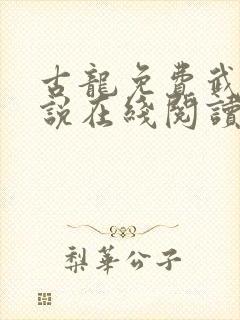 古龍免費武
說在綫閱讀
梨華公子